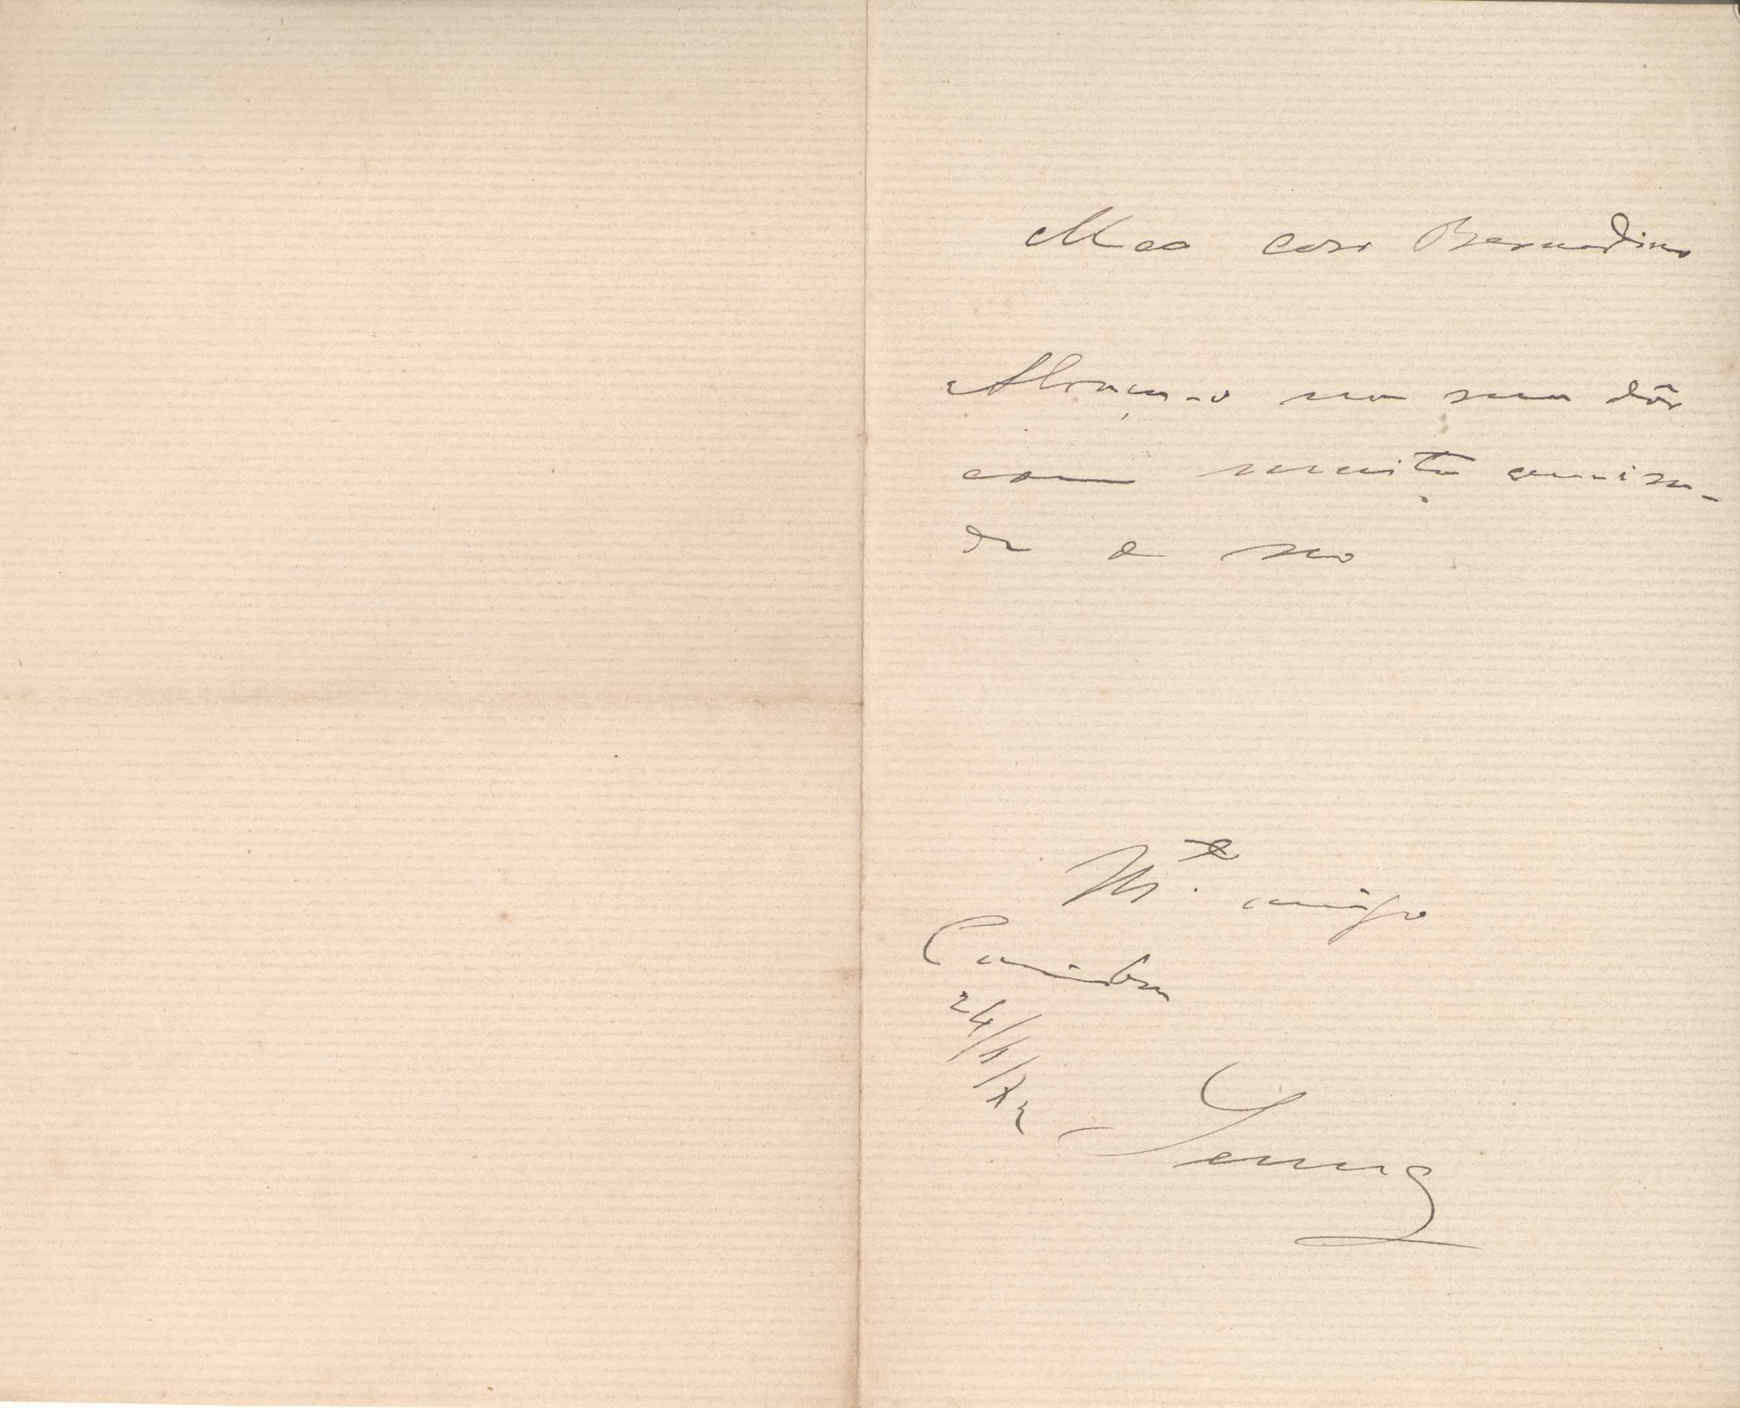 Meo caro Bernardino
Abraço-o na sua dôr
com muita amisa-
de e sou
M.to amigo
Coimbra
24/1/